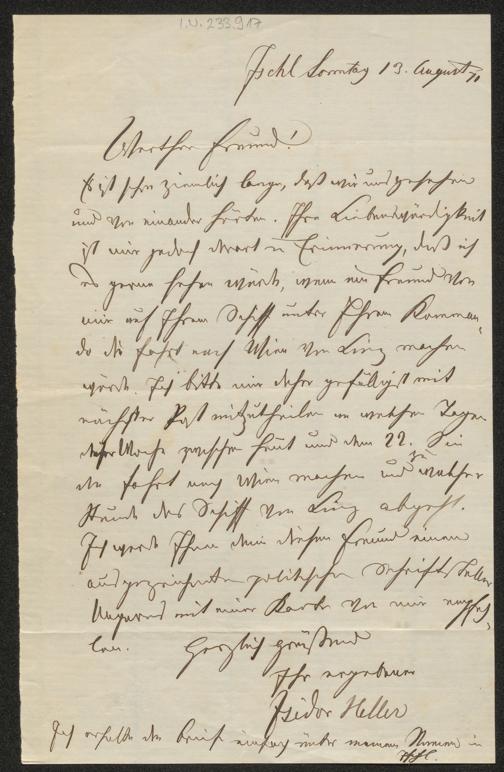 I.N. 233.917
Ischl Sonntag 13. August 71
Werther Freund!
Es ist schon ziemlich lange, daß wir uns gesehen
und von einander hörten. Ihre Liebenswürdigkeit
ist mir jedoch derart in Erinnerung, daß ich
es gerne sehen würde, wenn ein Freund von
mir auf Ihrem Schiff unter Ihrem Komman-
do die Fahrt nach Wien von Linz machen
würde. Ich bitte mir daher gefälligst mit
nächster Post mitzutheilen an welchen Tagen
dieser Woche zwischen heut und dem 22. Sie
die Fahrt nach Wien machen und zu welcher
Stunde das Schiff von Linz abgeht.
Ich werde Ihnen dann diesen Freund einen
ausgezeichneten politischen Schriftsteller
Ungarns mit einer Karte von mir empfeh-
len. Herzlich grüßend
Ihr ergebener
Isidor Heller
Ich erhalte den Brief einfach unter meinem Namen in
Ischl.